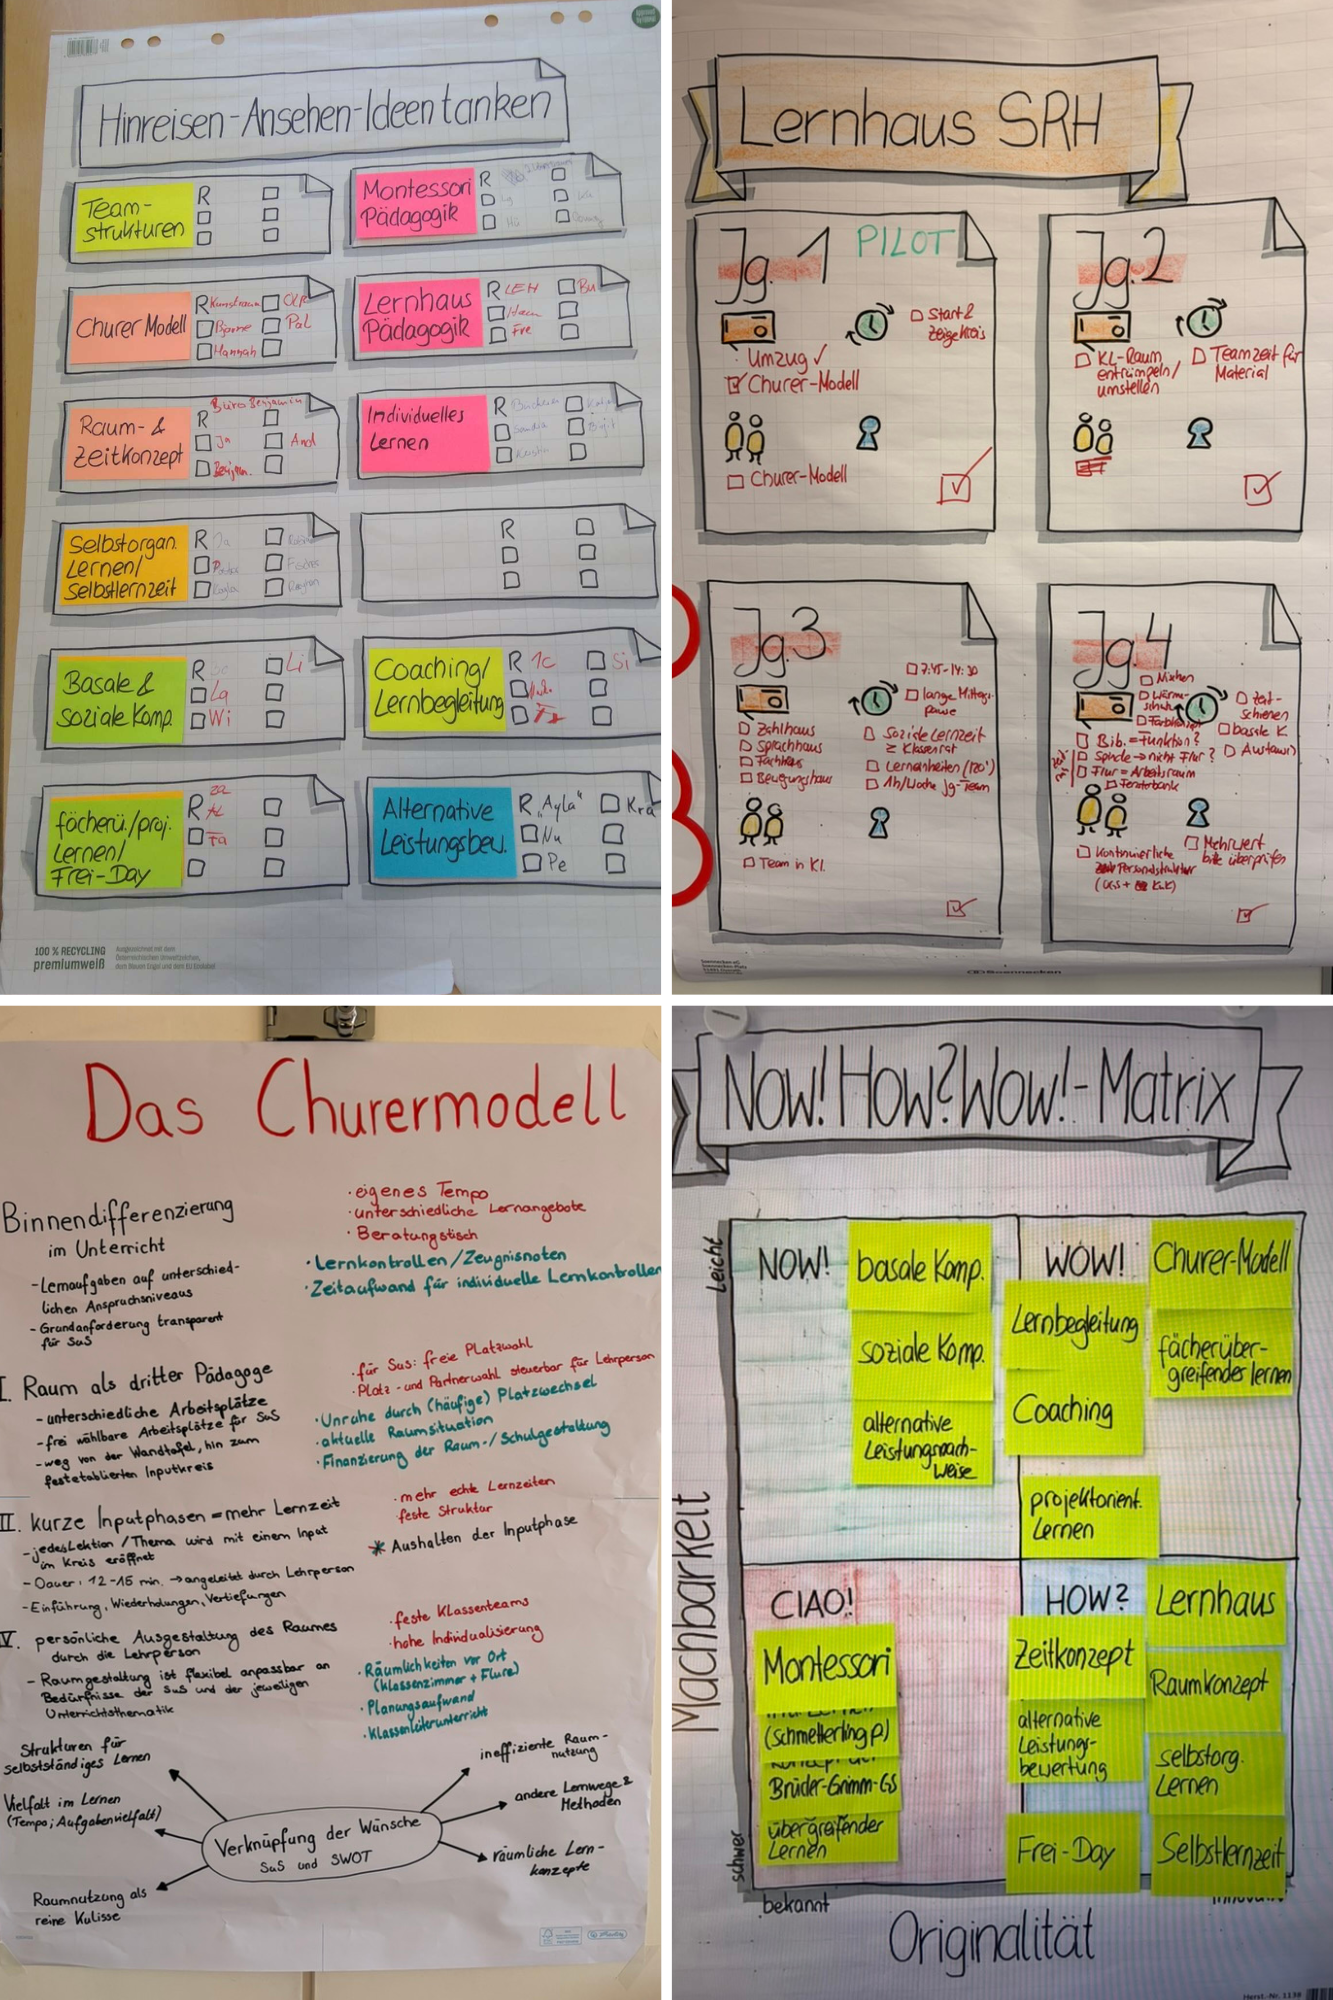 Hinreisen-Ansehen-Ideen tanken
Team-
strukturen
R
Montessori
Pädagogik
R
Churer Modell
R Kunstraum
OLP
Bjarne
Pal
Hannah
Lernhaus
Pädagogik
R LEH
Bu
Ham
Fre
Raum- &
Zeitkonzept
Büro Benjamin
R
Ja
And
Benjam.
Individuelles
Lernen
R Bücherei
Sandra
Birgit
Kerstin
Selbstorgan.
Lernen/
Selbstlernzeit
R
R
Basale &
soziale Komp.
R
Li
La
Wi
Coaching/
Lernbegleitung
R 1c
Si
fächerü./proj.
Lernen/
Frei-Day
R
Fa
Alternative
Leistungsbew.
R "Ayla"
Kra
Nu
Pe
100 % RECYCLING
premiumweiß
Ausgezeichnet mit dem
Österreichischen Umweltzeichen,
dem Blauen Engel und dem EU Ecolabel
Lernhaus SRH
Jg. 1
PILOT
Start &
Zeigekreis
Umzug ✓
Churer-Modell
Churer-Modell
Jg. 2
KL-Raum
entrümpeln/
umstellen
Teamzeit für
Material
Jg. 3
7:45-14:30
lange Mittags-
pause
Zahlhaus
Sprachhaus
Fachhaus
Bewegungshaus
Soziale Lernzeit
≥ Klassenrat
Lerneinheiten (120')
Ah/Woche Jg-Team
Team in Kl.
Jg. 4
Nischen
Wärme-
Farbkonzept
Zeit-
schienen
basale K.
Austausch
Bib. = Funktion?
Spinde → nicht Flur?
Flur = Arbeitsraum
Fensterbank
Kontinuierliche
Personalstruktur
(OGS + KuK)
Mehrwert
bitte überprüfen
Das Churermodell
Binnendifferenzierung
im Unterricht
- Lernaufgaben auf unterschied-
lichen Anspruchsniveaus
- Grundanforderung transparent
für SuS
· eigenes Tempo
· unterschiedliche Lernangebote
· Beratungstisch
· Lernkontrollen / Zeugnisnoten
· Zeitaufwand für individuelle Lernkontrollen
I. Raum als dritter Pädagoge
- unterschiedliche Arbeitsplätze
- frei wählbare Arbeitsplätze für SuS
- weg von der Wandtafel, hin zum
festetablierten Inputkreis
· für SuS: freie Platzwahl
· Platz- und Partnerwahl steuerbar für Lehrperson
· Unruhe durch (häufige) Platzwechsel
· aktuelle Raumsituation
· Finanzierung der Raum-/Schulgestaltung
II. kurze Inputphasen = mehr Lernzeit
- jedes Lektion / Thema wird mit einem Input
im Kreis eröffnet
- Dauer: 12-15 min. → angeleitet durch Lehrperson
- Einführung, Wiederholungen, Vertiefungen
· mehr echte Lernzeiten
· feste Struktur
* Aushalten der Inputphase
V. persönliche Ausgestaltung des Raumes
durch die Lehrperson
- Raumgestaltung ist flexibel anpassbar an
Bedürfnisse der SuS und der jeweiligen
Unterrichtsthematik
· feste Klassenteams
· hohe Individualisierung
· Räumlichkeiten vor Ort
(Klassenzimmer + Flure)
· Planungsaufwand
· Klassenleiterunterricht
Strukturen für
selbstständiges Lernen
Vielfalt im Lernen
(Tempo; Aufgabenvielfalt)
Raumnutzung als
reine Kulisse
Verknüpfung der Wünsche
SuS und SWOT
ineffiziente Raum-
nutzung
andere Lernwege &
Methoden
räumliche Lern-
konzepte
Now! How? Wow!-Matrix
Machbarkeit
Leicht
schwer
NOW!
basale Komp.
soziale Komp.
alternative
Leistungsnach-
weise
WOW!
Churer-Modell
Lernbegleitung
fächerüber-
greifender lernen
Coaching
projektorient.
Lernen
CIAO!
Montessori
(Schmetterling p)
Brüder-Grimm-GS
übergreifender
Lernen
HOW?
Lernhaus
Zeitkonzept
Raumkonzept
alternative
Leistungs-
bewertung
selbstorg.
Lernen
Frei-Day
Selbstlernzeit
bekannt
Originalität